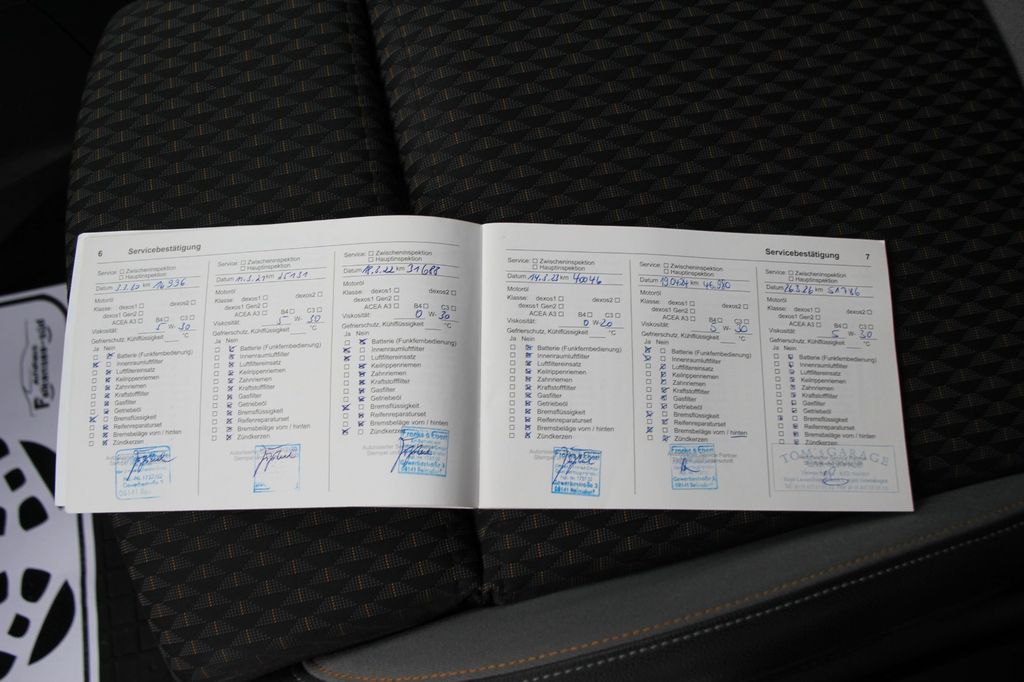 6 Servicebestätigung
Service: ☐ Zwischeninspektion
☐ Hauptinspektion
Datum 3.3.20 km 16 936
Motoröl
Klasse: dexos1 ☐ dexos2 ☐
dexos1 Gen2 ☐
ACEA A3 ☐ B4 ☐ C3 ☐
Viskosität: 5 W- 30
Gefrierschutz, Kühlflüssigkeit °C
Ja Nein
Batterie (Funkfernbedienung)
Innenraumluftfilter
Luftfiltereinsatz
Keilrippenriemen
Zahnriemen
Kraftstofffilter
Gasfilter
Getriebeöl
Bremsflüssigkeit
Reifenreparaturset
Bremsbeläge vorn / hinten
Zündkerzen
Service: ☐ Zwischeninspektion
☐ Hauptinspektion
km 25131
Motoröl
Klasse: dexos1 ☐ dexos2 ☐
dexos1 Gen2 ☐
ACEA A3 ☐ B4 ☐ C3 ☐
Viskosität: 5 W- 30
Gefrierschutz, Kühlflüssigkeit °C
Ja Nein
Batterie (Funkfernbedienung)
Innenraumluftfilter
Luftfiltereinsatz
Keilrippenriemen
Zahnriemen
Kraftstofffilter
Gasfilter
Getriebeöl
Bremsflüssigkeit
Reifenreparaturset
Bremsbeläge vorn / hinten
Zündkerzen
Service: ☐ Zwischeninspektion
☐ Hauptinspektion
Datum 18.3.22 km 31688
Motoröl
Klasse: dexos1 ☐ dexos2 ☐
dexos1 Gen2 ☐
ACEA A3 ☐ B4 ☐ C3 ☐
Viskosität: 0 W- 30
Gefrierschutz, Kühlflüssigkeit °C
Ja Nein
Batterie (Funkfernbedienung)
Innenraumluftfilter
Luftfiltereinsatz
Keilrippenriemen
Zahnriemen
Kraftstofffilter
Gasfilter
Getriebeöl
Bremsflüssigkeit
Reifenreparaturset
Bremsbeläge vorn / hinten
Zündkerzen
Gewerbestraße 3
Servicebestätigung 7
Service: ☐ Zwischeninspektion
☐ Hauptinspektion
Datum 14.3.23 km 40046
Motoröl
Klasse: dexos1 ☐ dexos2 ☐
dexos1 Gen2 ☐
ACEA A3 ☐ B4 ☐ C3 ☐
Viskosität: 0 W- 30
Gefrierschutz, Kühlflüssigkeit °C
Ja Nein
Batterie (Funkfernbedienung)
Innenraumluftfilter
Luftfiltereinsatz
Keilrippenriemen
Zahnriemen
Kraftstofffilter
Gasfilter
Getriebeöl
Bremsflüssigkeit
Reifenreparaturset
Bremsbeläge vorn / hinten
Zündkerzen
Gewerbestraße 3
08141 Reinsdorf
Service: ☐ Zwischeninspektion
☐ Hauptinspektion
Datum 19.04.24 km
Motoröl
Klasse: dexos1 ☐ dexos2 ☐
dexos1 Gen2 ☐
ACEA A3 ☐ B4 ☐ C3 ☐
Viskosität: 5 W- 30
Gefrierschutz, Kühlflüssigkeit °C
Ja Nein
Batterie (Funkfernbedienung)
Innenraumluftfilter
Luftfiltereinsatz
Keilrippenriemen
Zahnriemen
Kraftstofffilter
Gasfilter
Getriebeöl
Bremsflüssigkeit
Reifenreparaturset
Bremsbeläge vorn / hinten
Zündkerzen
08141 Reinsdorf
Service: ☐ Zwischeninspektion
☐ Hauptinspektion
Datum 26.3.26 km 51786
Motoröl
Klasse: dexos1 ☐ dexos2 ☐
dexos1 Gen2 ☐
ACEA A3 ☐ B4 ☐ C3 ☐
Viskosität: 5 W- 30
Gefrierschutz, Kühlflüssigkeit °C
Ja Nein
Batterie (Funkfernbedienung)
Innenraumluftfilter
Luftfiltereinsatz
Keilrippenriemen
Zahnriemen
Kraftstofffilter
Gasfilter
Getriebeöl
Bremsflüssigkeit
Reifenreparaturset
Bremsbeläge vorn / hinten
Zündkerzen
TOM'S GARAGE